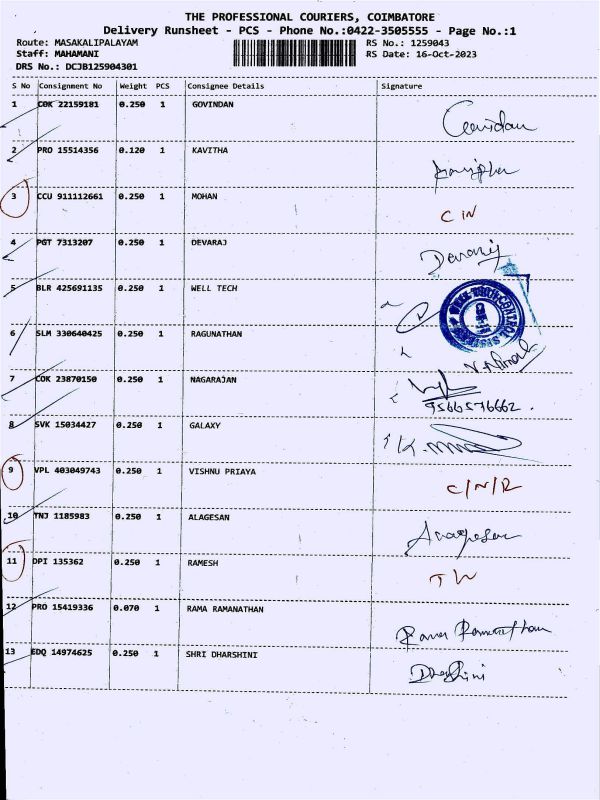 THE PROFESSIONAL COURIERS, COIMBATORE
Delivery Runsheet - PCS - Phone No.:0422-3505555 - Page No.:1
Route: MASAKALIPALAYAM RS No.: 1259043
Staff: MAHAMANI RS Date: 16-Oct-2023
DRS No.: DCJB125904301
S No Consignment No Weight PCS Consignee Details Signature
1 COK 22159181 0.250 1 GOVINDAN Govindan
2 PRO 15514356 0.120 1 KAVITHA
3 CCU 911112661 0.250 1 MOHAN C N
4 PGT 7313207 0.250 1 DEVARAJ Devaraj
5 BLR 425691135 0.250 1 WELL TECH
6 SLM 330640425 0.250 1 RAGUNATHAN
7 COK 23870150 0.250 1 NAGARAJAN 9566576662.
8 SVK 15034427 0.250 1 GALAXY
9 VPL 403049743 0.250 1 VISHNU PRIAYA C/N/R
10 TNJ 1185983 0.250 1 ALAGESAN Alagesan
11 DPI 135362 0.250 1 RAMESH
12 PRO 15419336 0.070 1 RAMA RAMANATHAN Rama Ramanathan
13 EDQ 14974625 0.250 1 SHRI DHARSHINI Dharshini